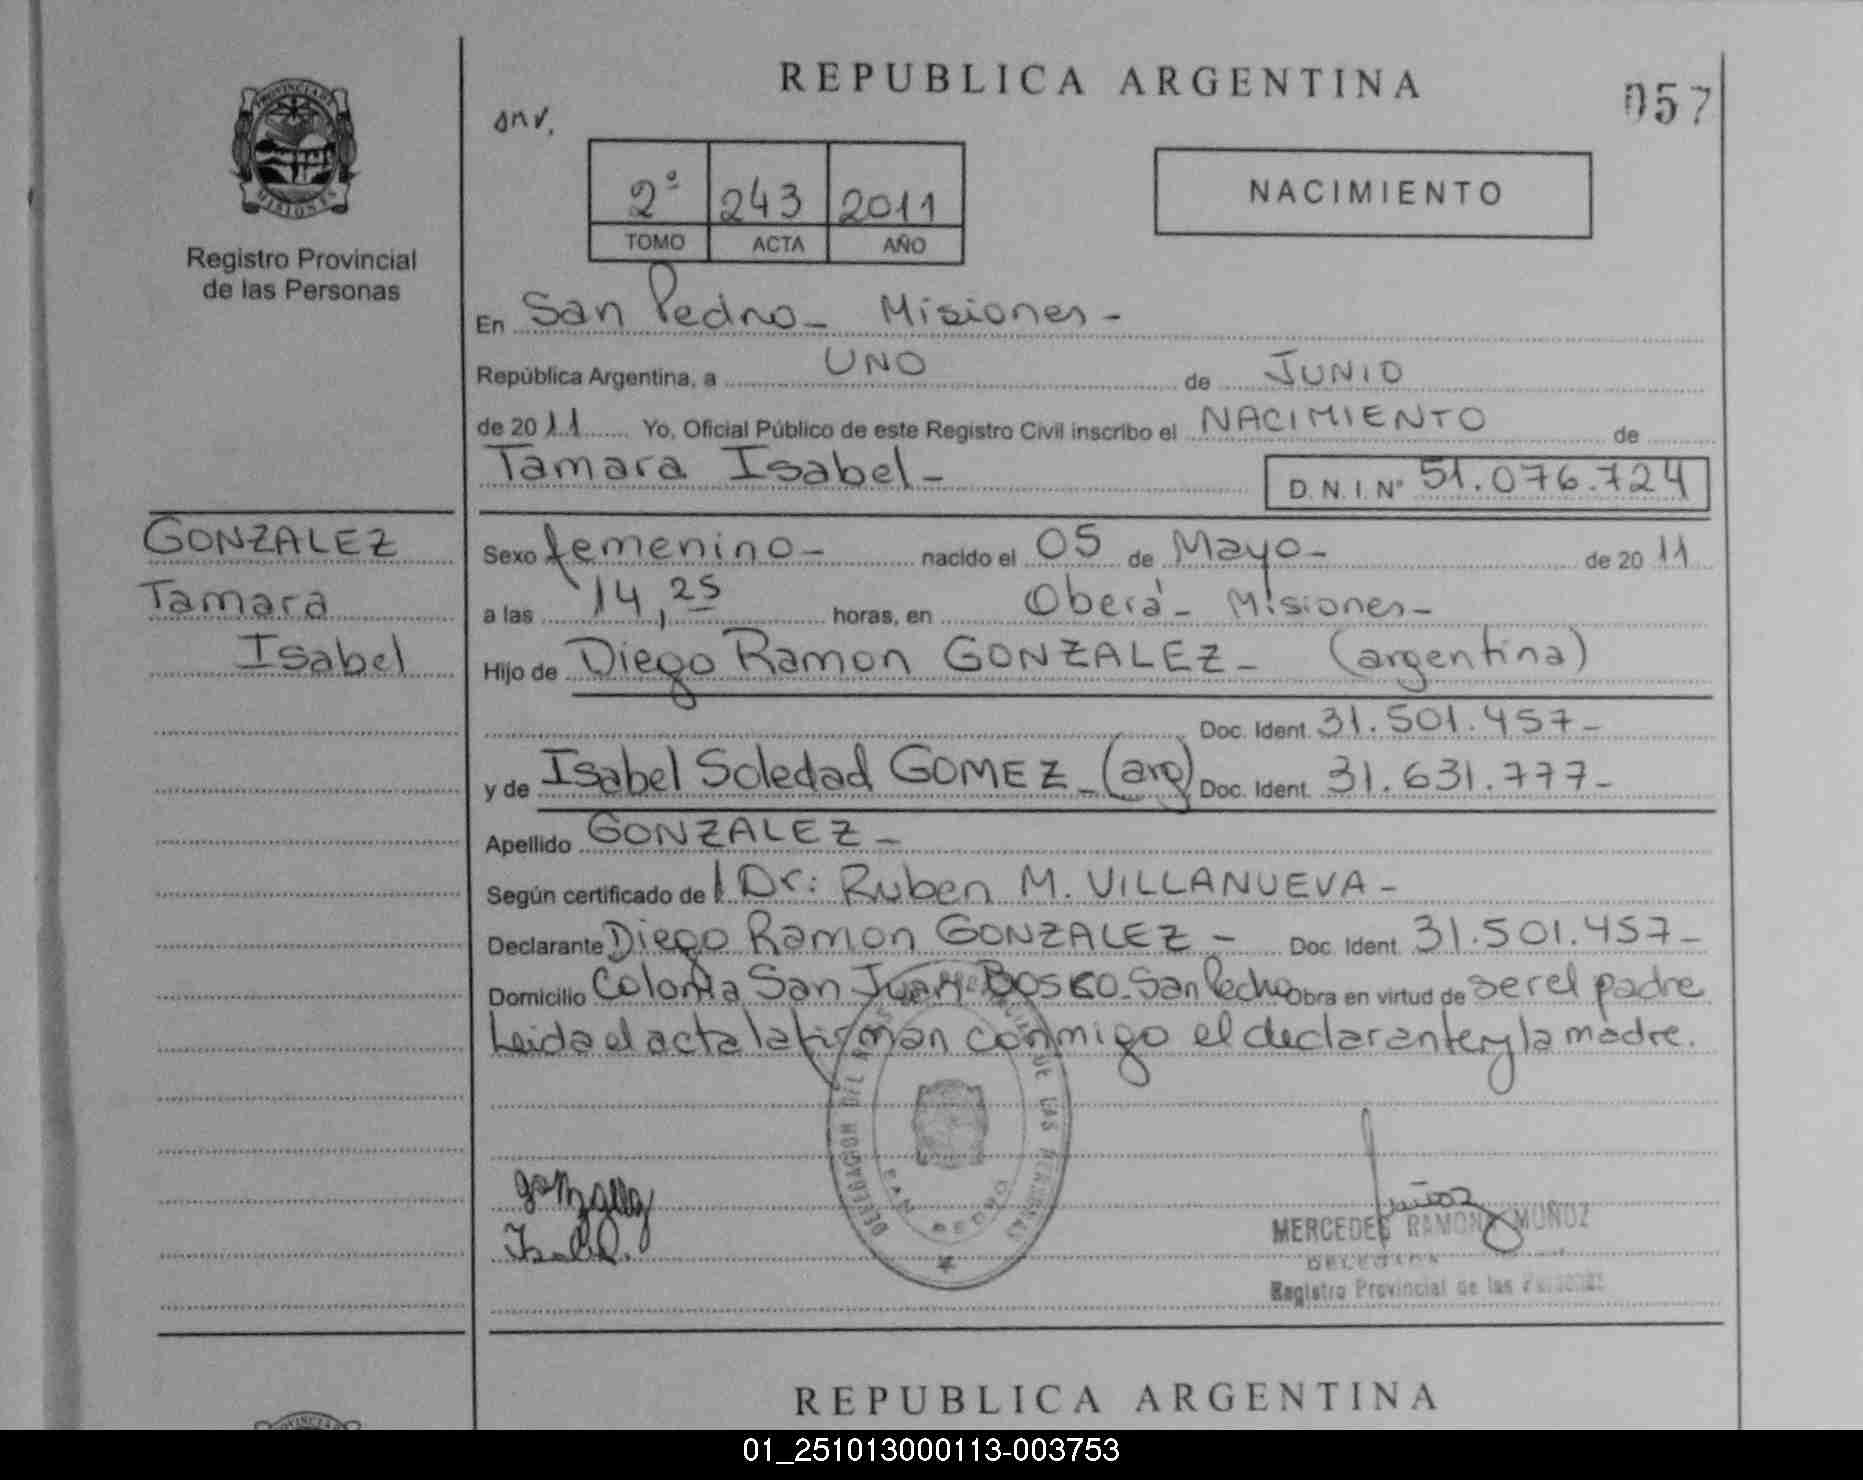 REPUBLICA ARGENTINA
057
PROVINCIA DE
MISIONES
Registro Provincial
de las Personas
2º 243 2011
TOMO ACTA AÑO
NACIMIENTO
En San Pedro - Misiones -
República Argentina, a UNO de JUNIO
de 2011 Yo, Oficial Público de este Registro Civil inscribo el NACIMIENTO de
Tamara Isabel - D.N.I. Nº 51.076.724
GONZALEZ
Tamara
Isabel
Sexo femenino - nacido el 05 de Mayo - de 2011
a las 14,25 horas, en Oberá - Misiones -
Hijo de Diego Ramon GONZALEZ - (argentina)
Doc. Ident. 31.501.457 -
y de Isabel Soledad GOMEZ - (arg) Doc. Ident. 31.631.777 -
Apellido GONZALEZ -
Según certificado de l Dr: Ruben M. VILLANUEVA -
Declarante Diego Ramon GONZALEZ - Doc. Ident. 31.501.457 -
Domicilio Colonia San Juan Bosco - San Pedro Obra en virtud de ser el padre
Leida el acta la firman conmigo el declarante y la madre.
DELEGACION DEL DE LAS PERSONAS
SAN PEDRO
MERCEDES RAMONA MUÑOZ
Registro Provincial de las Personas
REPUBLICA ARGENTINA
01_251013000113-003753